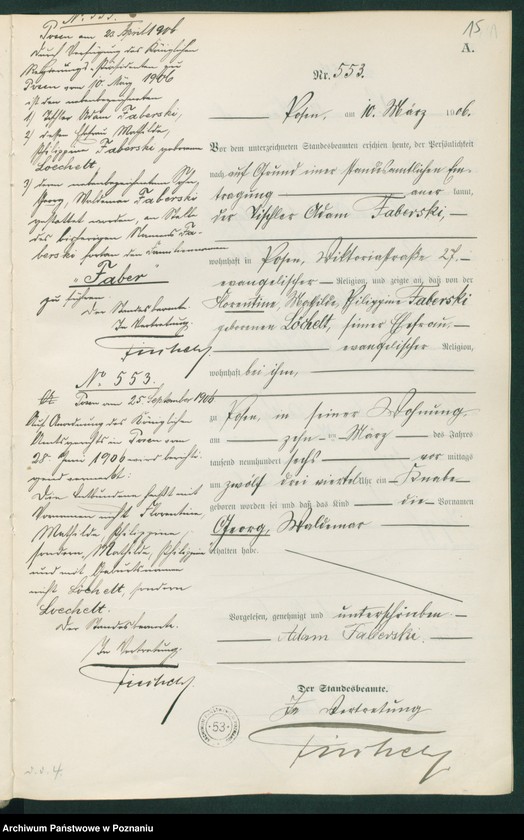 15
A.
Nr. 553.
Posen, am 10. März 1906.
Vor dem unterzeichneten Standesbeamten erschien heute, der Persönlichkeit
nach auf Grund einer standesamtlichen Ein-
tragung anerkannt,
der Tischler Adam Faberski,
wohnhaft in Posen, Viktoriastraße 27.
evangelischer Religion, und zeigte an, daß von der
Florentine, Mathilde, Philippine Faberski
geborenen Löchelt, seiner Ehefrau,
evangelischer Religion,
wohnhaft bei ihm,
zu Posen, in seiner Wohnung
am zehnten März des Jahres
tausend neunhundert sechs vor mittags
um zwölf drei viertel Uhr ein Knabe
geboren worden sei und daß das Kind die Vornamen
Georg, Waldemar
erhalten habe.
Vorgelesen, genehmigt und unterschrieben
Adam Faberski.
Der Standesbeamte.
In Vertretung
53
Nr. 553.
Posen am 20. April 1906
Durch Verfügung des Königlichen
Regierungs-Präsidenten zu
Posen vom 10. März 1906
ist den nebenbezeichneten
1) Tischler Adam Faberski,
2) dessen Ehefrau Mathilde,
Philippine Faberski geborenen
Loechelt,
3) deren nebenbezeichneten Sohn,
Georg, Waldemar Faberski
gestattet worden, an Stelle
des bisherigen Namens Fa-
berski fortan den Familiennamen
"Faber"
zu führen.
Der Standesbeamte.
In Vertretung.
No 553.
Posen am 25. September 1906
Auf Anordnung des Königlichen
Amtsgerichts in Posen vom
28. Juni 1906 wird berichti-
gend vermerkt:
Die Ehefrau heißt mit
Vornamen nicht Florentine,
Mathilde, Philippine,
sondern, Mathilde, Philippine
und mit Geburtsnamen
nicht Löchelt, sondern
Loechelt.
Der Standesbeamte.
In Vertretung.
Archiwum Państwowe w Poznaniu